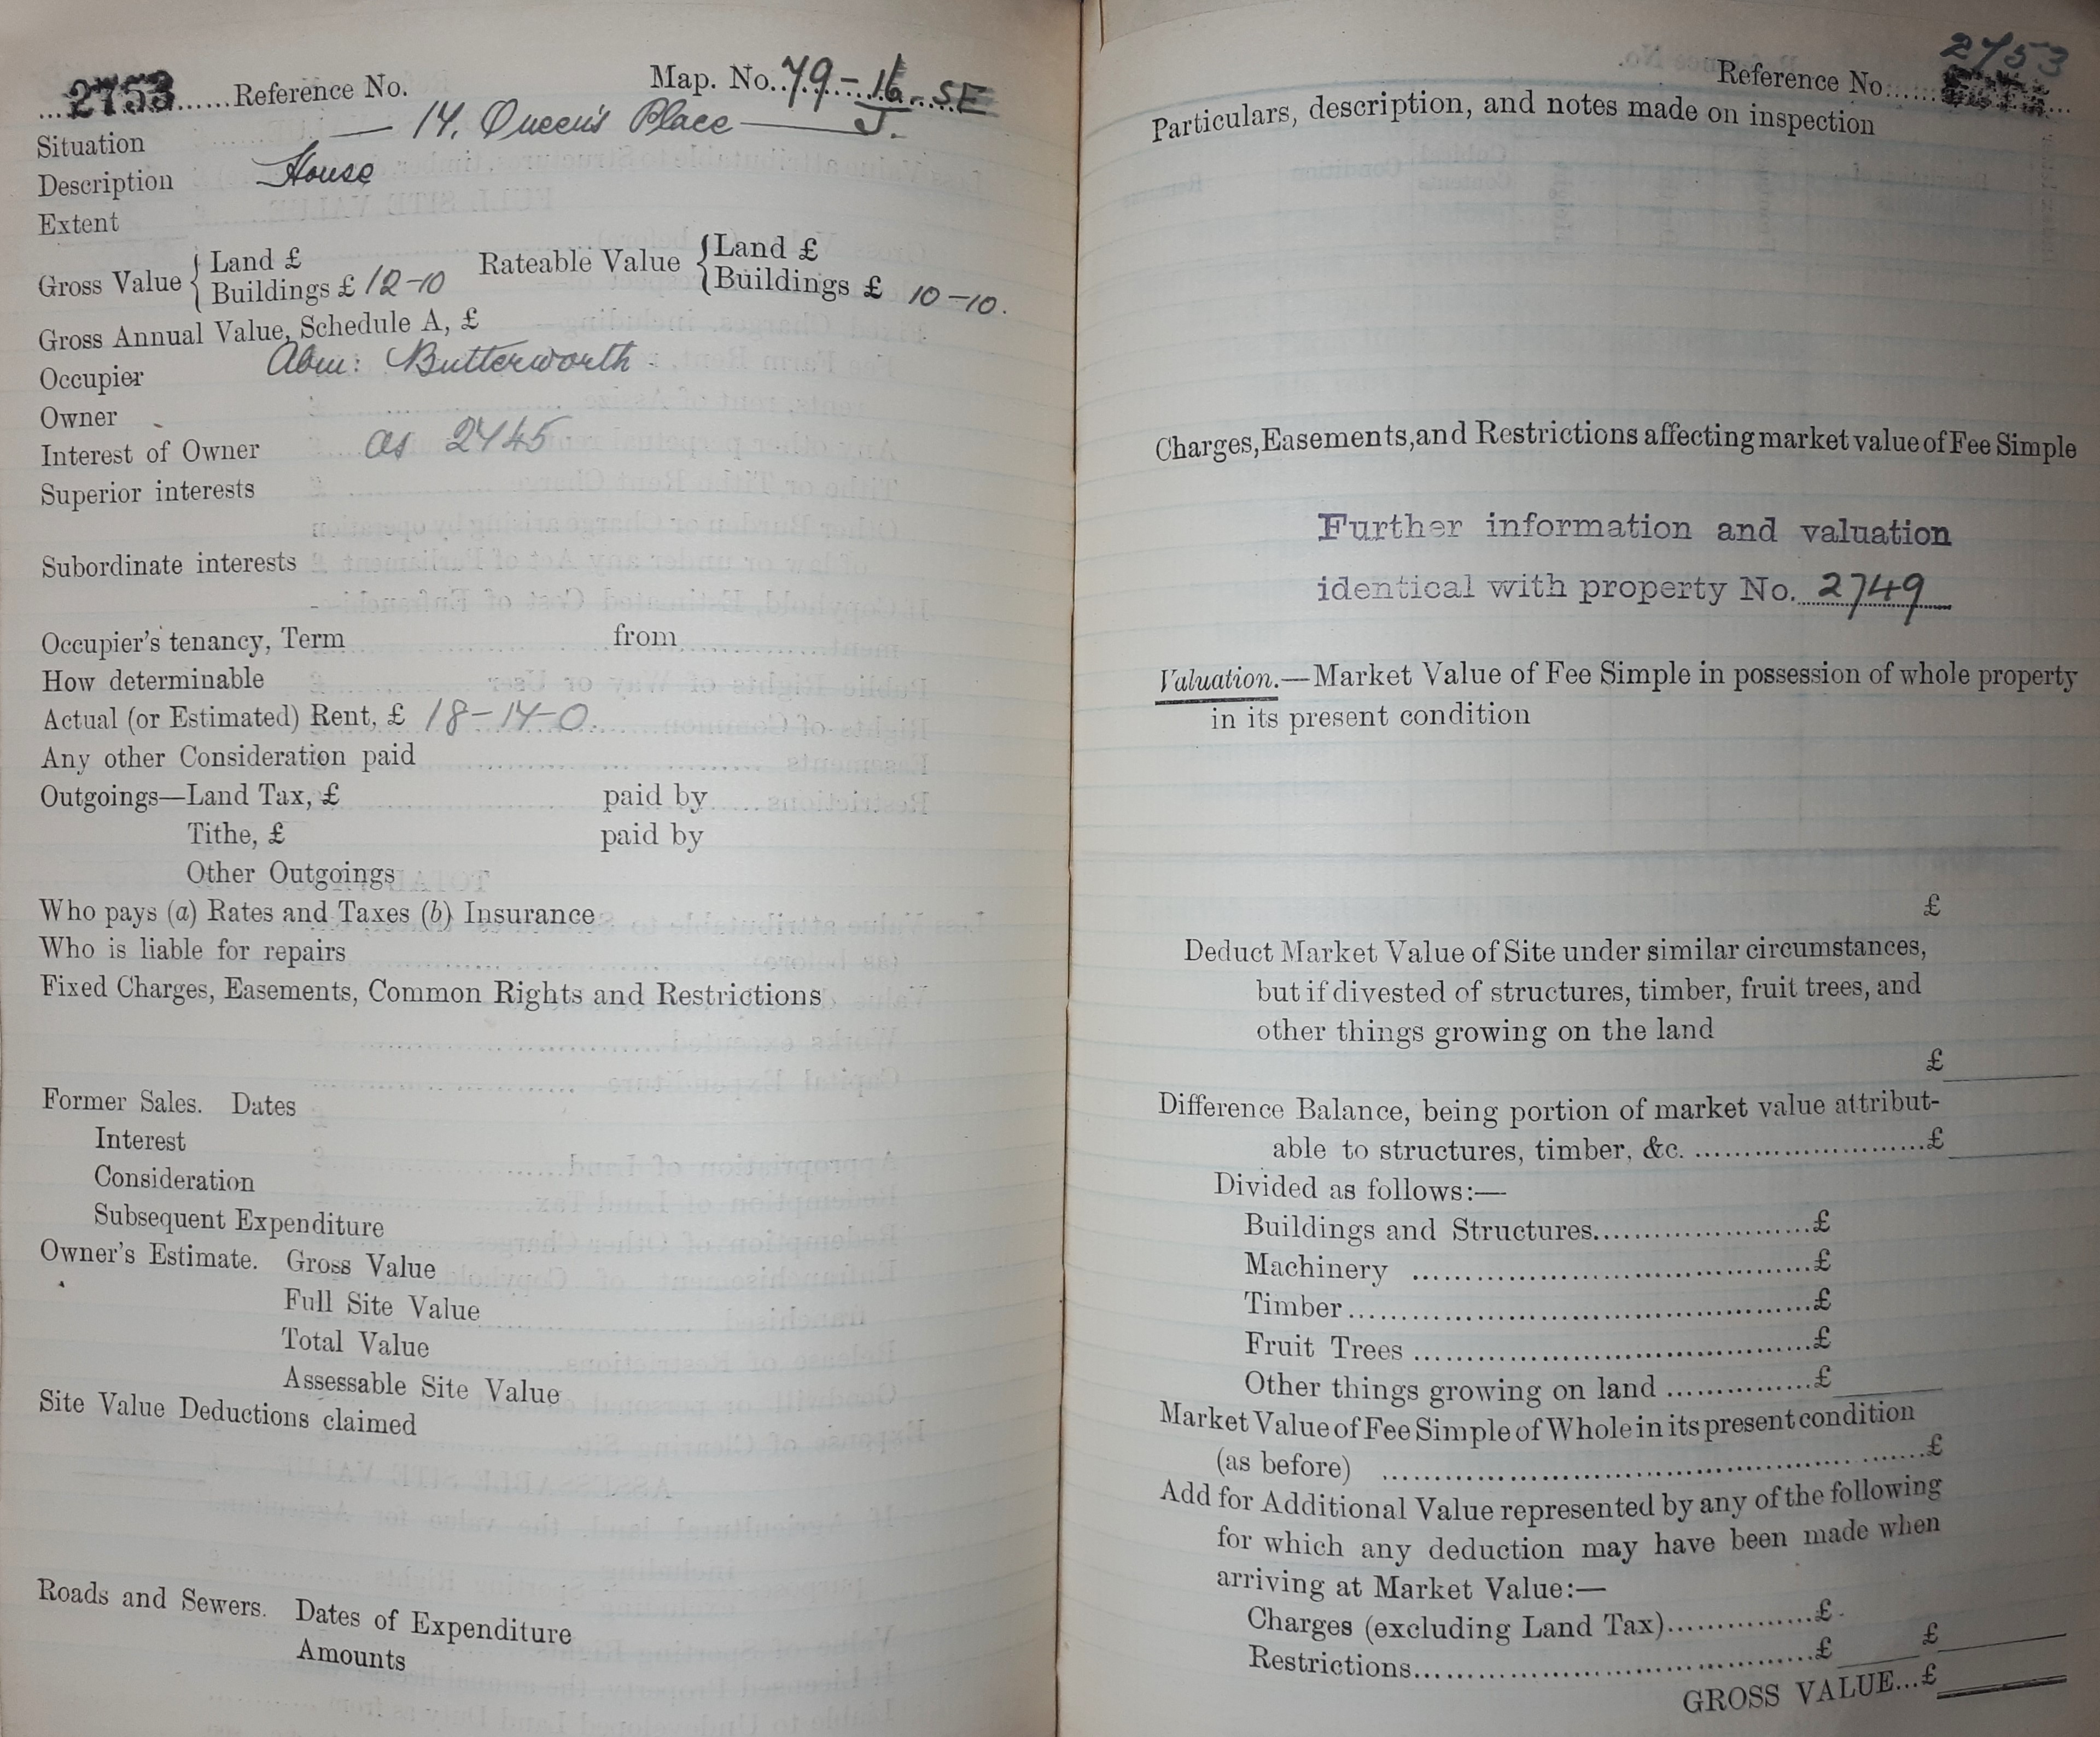 2753 Reference No. Map. No. 79-16-SE
Situation — 14, Queen's Place — J.
Description House
Extent
Gross Value { Land £
Buildings £ 12-10
Rateable Value { Land £
Buildings £ 10-10.
Gross Annual Value, Schedule A, £
Occupier Abm: Butterworth
Owner
Interest of Owner as 2745
Superior interests
Subordinate interests
Occupier's tenancy, Term from
How determinable
Actual (or Estimated) Rent, £ 18-14-0.
Any other Consideration paid
Outgoings—Land Tax, £ paid by
Tithe, £ paid by
Other Outgoings
Who pays (a) Rates and Taxes (b) Insurance
Who is liable for repairs
Fixed Charges, Easements, Common Rights and Restrictions
Former Sales. Dates
Interest
Consideration
Subsequent Expenditure
Owner's Estimate. Gross Value
Full Site Value
Total Value
Assessable Site Value
Site Value Deductions claimed
Roads and Sewers. Dates of Expenditure
Amounts
2753
Reference No.
Particulars, description, and notes made on inspection
Charges, Easements, and Restrictions affecting market value of Fee Simple
Further information and valuation
identical with property No. 2749
Valuation.—Market Value of Fee Simple in possession of whole property
in its present condition
£
Deduct Market Value of Site under similar circumstances,
but if divested of structures, timber, fruit trees, and
other things growing on the land
£
Difference Balance, being portion of market value attribut-
able to structures, timber, &c. ........................£
Divided as follows:—
Buildings and Structures........................£
Machinery ........................£
Timber........................£
Fruit Trees ........................£
Other things growing on land ...............£
Market Value of Fee Simple of Whole in its present condition
(as before) ........................£
Add for Additional Value represented by any of the following
for which any deduction may have been made when
arriving at Market Value:—
Charges (excluding Land Tax)...............£
Restrictions........................£ £
GROSS VALUE...£